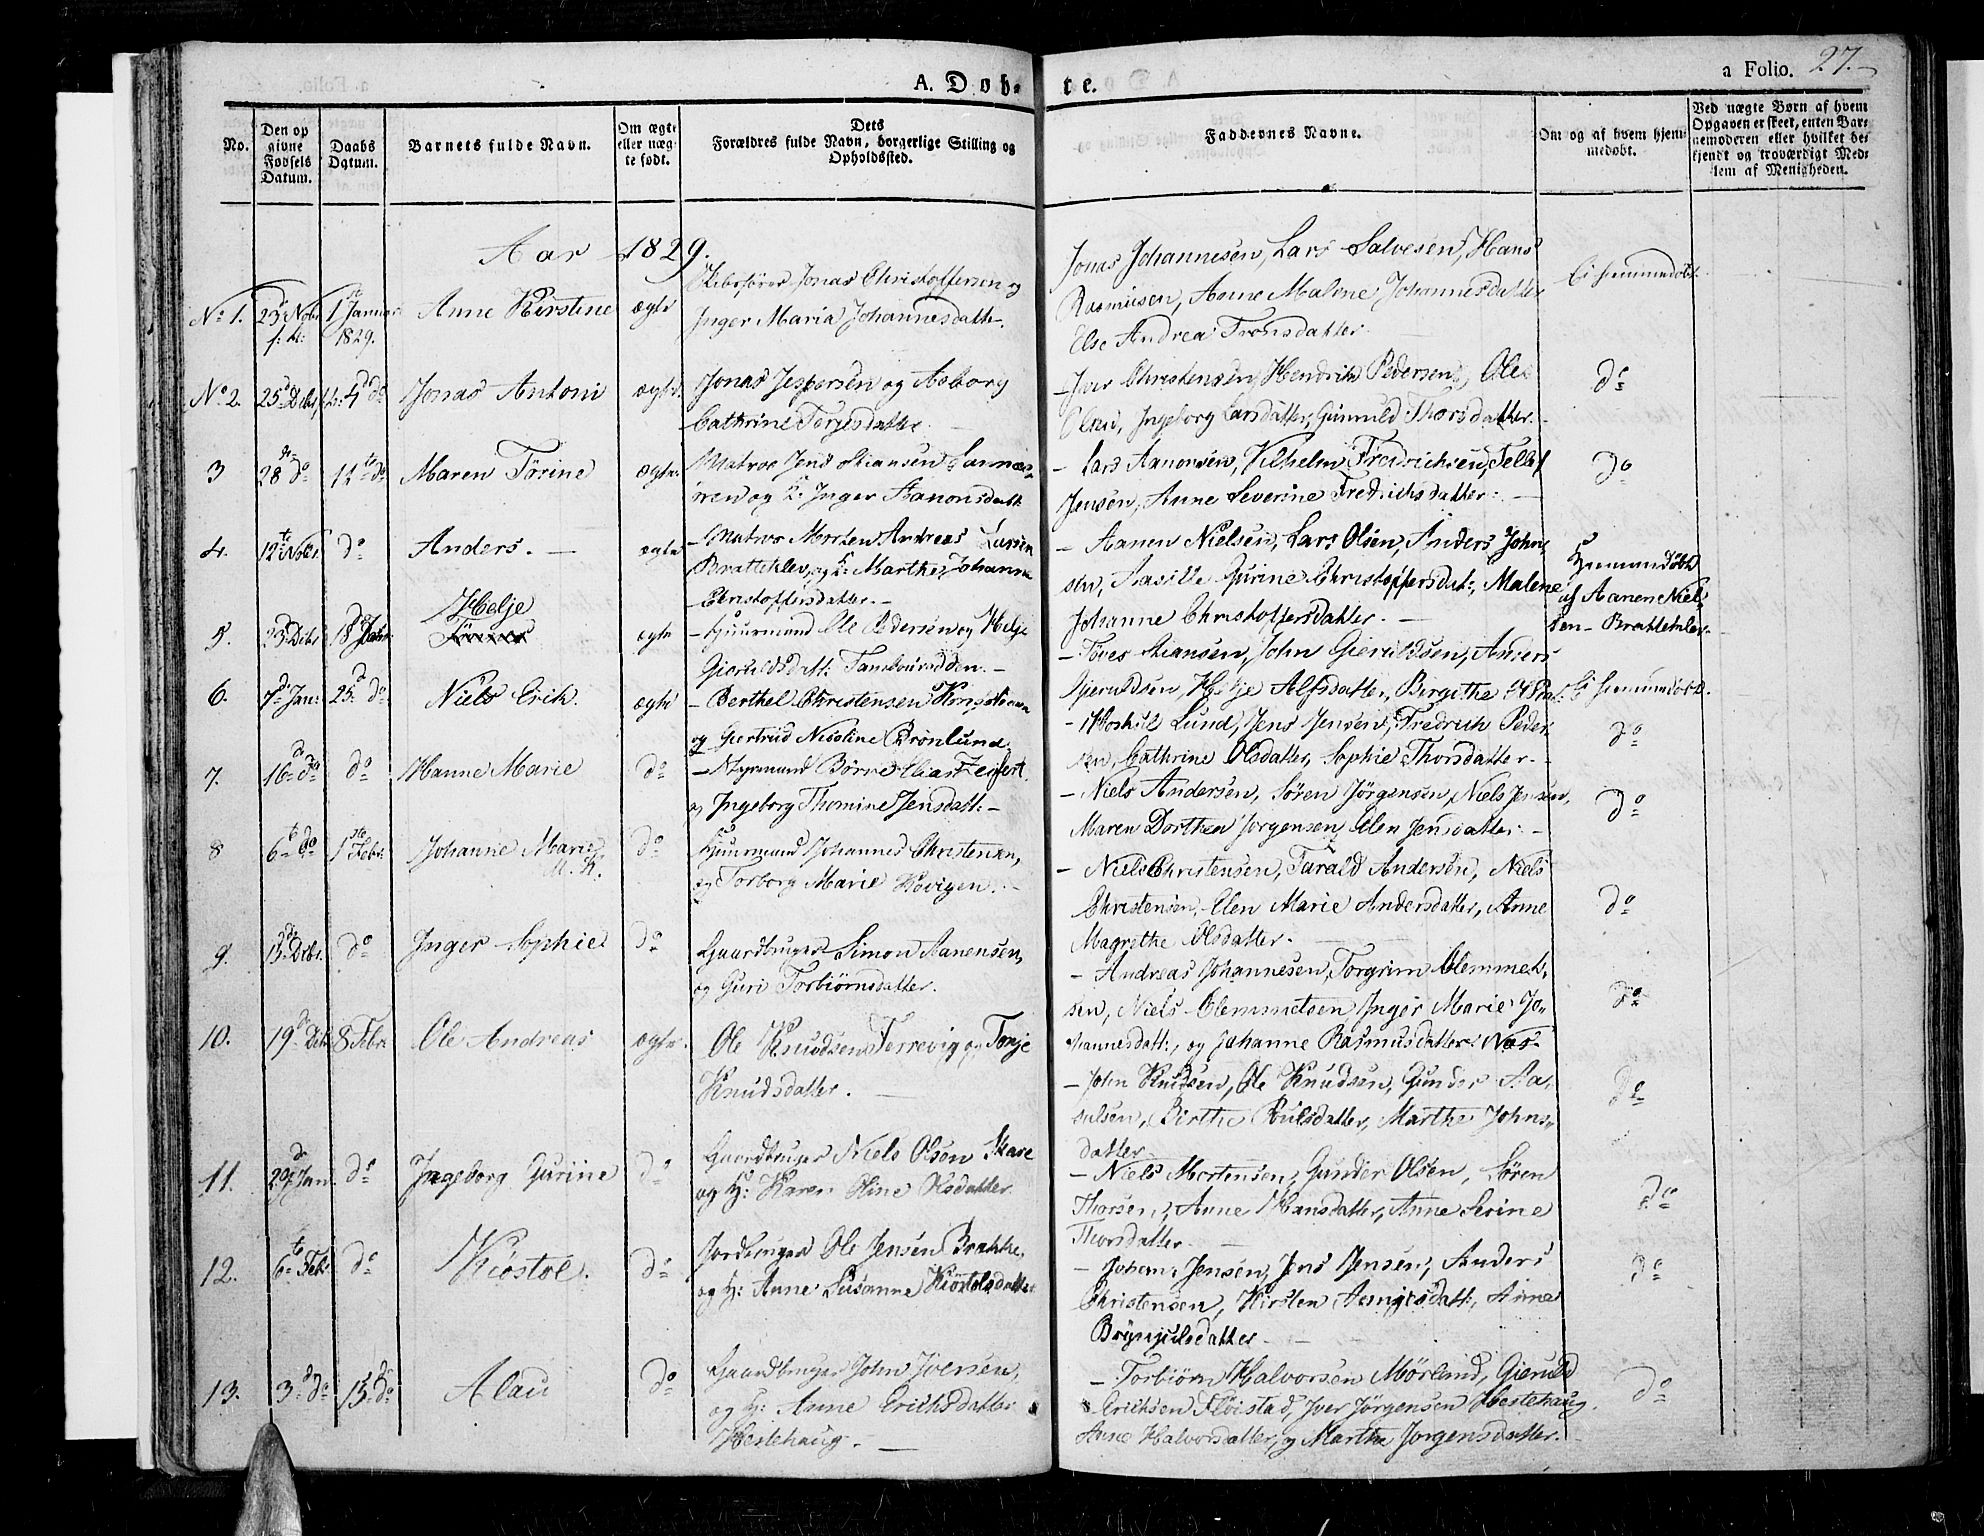 A. Døb-
te.
a Folio. 27.
No.
Den op
givne
Fødsels
Datum.
Daabs
Datum.
Barnets fulde Navn.
Om ægte
eller uæg-
te født.
Dets
Forældres fulde Navn, borgerlige Stilling og
Opholdssted.
Faddernes Navne.
Om og af hvem hjem-
medøbt.
Ved uægte Børn af hvem
Opgaven er skeet, enten Bar-
nemoderen eller hvilket be-
kjendt og troværdigt Med-
lem af Menigheden.
Aar 1829.
No 1. 23 Nobr 1 Januar 1829. Anne Kirstine ægte
Skibsfører Jonas Christoffersen og
Inger Maria Johannesdatter.
Jonas Johannesen, Lars Salvesen, Hans
Rasmusen, Anne Malene Johannesdatter
Else Andrea Tronsdatter.
Ei hjemmedøbt
No 2. 25 Debr 4 do Jonas Antoni ægte
Jonas Jespersen og Aaborg
Cathrine Torgesdatter.
Iver Christensen, Hendrik Pedersen, Ole
Olsen, Ingeborg Larsdatter, Gunnuld Thorsdatter.
do
3 28 do 11te do Maren Torine ægte
Matros Jens Stiansen
og K. Inger Aanonsdatt:
- Lars Aanonsen, Vilhelm Fredrichsen, Tellef
Jensen, Anne Severine Fredrichsdatter. -
do
4. 12te Nobr do Anders. - ægte
- Matros Morten Andreas Larsen
Bratteklev, og K: Marthe Johanne
Christoffersdatter. -
- Aanen Nielsen, Lars Olsen, Anders John-
sen, Aasille Gurine Christoffersdat:, Malene
Johanne Christoffersdatter. -
Hjemmedøbt
af Aanen Niel-
sen - Bratteklev.
5. 23 Debr 18 Janr Helje ægte
- Huurmand Ole Pedersen og Helje
Gieruldsdatt: -
- Toves Stiansen, John Gieruldsen, Anders
Gjeruldsen, Helje Alfsdatter, Birgithe
Ei hjemmedøbt.
6. 7d Jan: 25 do Niels Erik. ægte
- Berthel Christensen
og Giertrud Nicoline Brönlund
- Lund, Jens Jensen, Fredrich Peder-
sen, Cathrine Olsdatter, Sophie Thorsdatter. -
do
7. 16 do do Hanne Marie do
- Styrmand Börre Elias Zeifert
og Ingeborg Thomine Jensdatt: -
- Niels Andersen, Sören Jörgensen, Niels Jensen,
Maren Dorthea Jörgensen, Elen Jensdatter. -
do
8 6te do 1ste Febr: Johanne Marie do
Huurmand Johannes Christensen,
og Torborg Marie Hovigen. -
- Niels Christensen, Tarald Andersen, Niels
Christensen, Elen Marie Andersdatter, Anne
Magrethe Olsdatter. -
do
9. 13 Debr. do Inger Sophie do
Gaardbruger Simon Aanensen,
og Guri Torbiörnsdatter.
- Andreas Johannesen, Torgrim Clemmet-
sen, Niels Clemmetsen Inger Marie Jo-
hannesdatt:, og Johanne Rasmusdatter: Næs. -
do
10. 19 Debr 8 Febr Ole Andreas ægte.
Ole Knudsen Terrevig og Tonje
Knudsdatter. -
- John Knudsen, Ole Knudsen, Gunder Aa-
sulsen, Birthe Poulsdatter, Marthe Johns-
datter.
do
11. 29 Jan. do Ingeborg Gurine do
Gaardbruger Niels Olsen Skare
og H: Karen Oline Olsdatter
- Niels Mortensen, Gunder Olsen, Sören
Thorsen, Anne Hansdatter, Anne Serine
Thorsdatter. -
do
12. 6te Febr do Kiöstol. do
Jordbruger Ole Jensen Brække,
og H: Anne Susanne Kiöstolsdatter
- Johan Jensen, Jens Jensen, Anders
Christensen, Kirsten Asmyrsdatt:, Anne
Brynjulsdatter. -
do
13. 3 do 15 do Alau do
Gaardbruger John Iversen,
og H: Anne Erichsdatter
Hestehaug. -
- Torbiörn Halvorsen Mørland, Gieruld
Erichsen Flöistad, Iver Jörgensen Hestehaug.
Anne Halvorsdatter, og Marthe Jorgensdatter. -
do